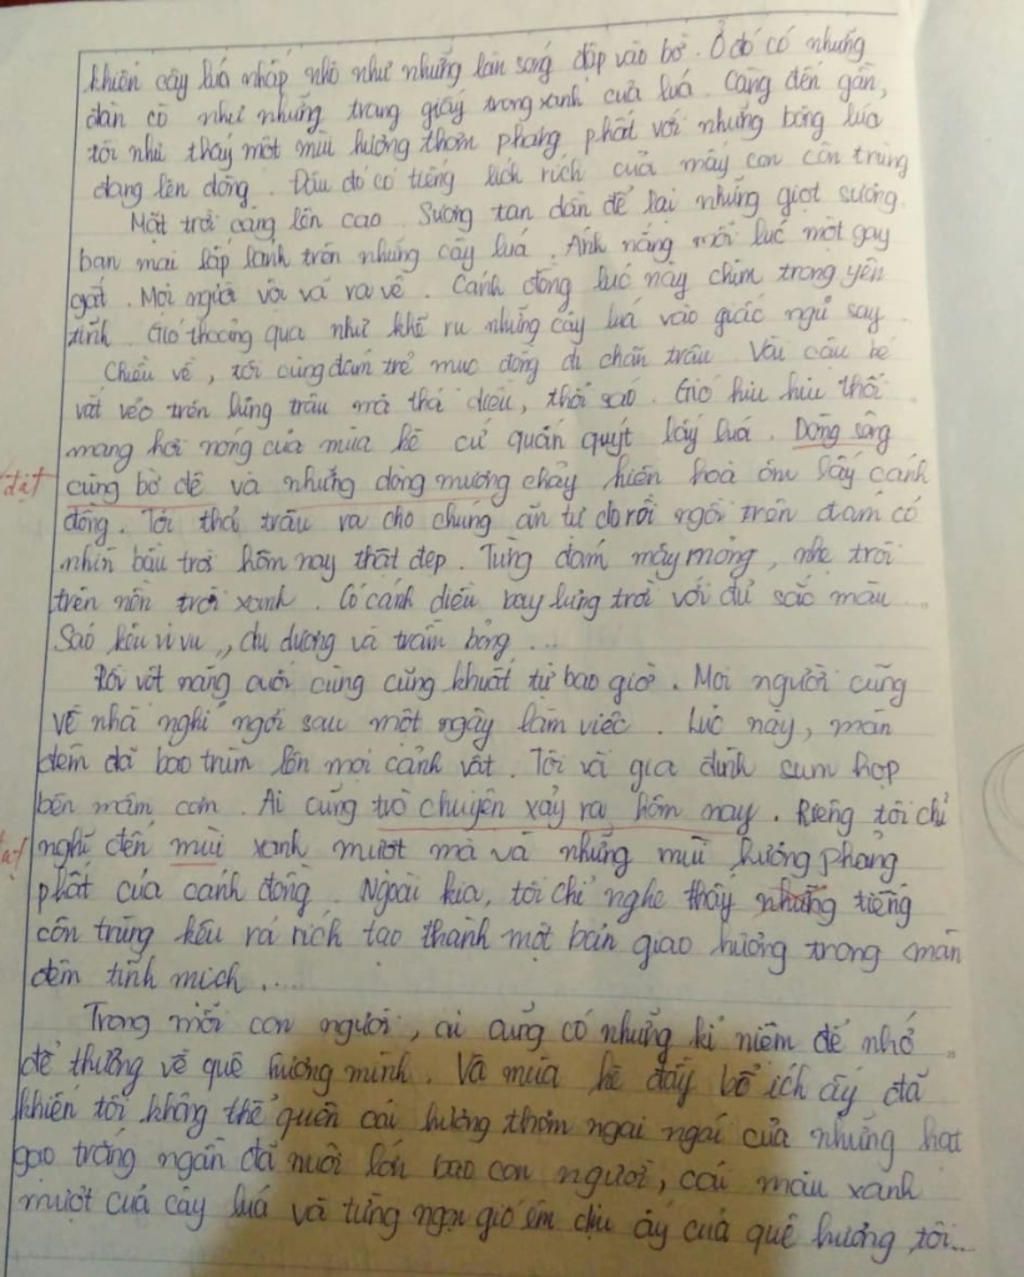 khiến cây lúa nhấp nhô như những làn sóng đập vào bờ. Ở đó có những
đàn cò như những trang giấy trong xanh của lúa. Càng đến gần,
tôi như thấy một mùi hương thơm phang phất với những bông lúa
đang lên đòng. Đâu đó có tiếng lích rích của mấy con côn trùng
Mặt trời càng lên cao. Sương tan dần để lại những giọt sương
ban mai lấp lánh trên những cây lúa. Ánh nắng mỗi lúc một gay
gắt. Mọi người vội vã ra về. Cánh đồng lúc này chìm trong yên
tĩnh. Gió thoảng qua như khẽ ru những cây lúa vào giấc ngủ say.
Chiều về, tôi cùng đám trẻ mục đồng đi chăn trâu. Vài cậu bé
vắt vẻo trên lưng trâu mà thả diều, thổi sáo. Gió hiu hiu thổi
mang hơi nóng của mùa hè cứ quấn quýt lấy lúa. Dòng sông
đạt cùng bờ đê và những dòng mương chảy hiền hoà ôm lấy cánh
đồng. Tôi thả trâu ra cho chúng ăn tự do rồi ngồi trên đám cỏ
nhìn bầu trời hôm nay thật đẹp. Từng đám mây mỏng, nhẹ trôi
trên nền trời xanh. Có cánh diều bay lưng trời với đủ sắc màu...
Sáo kêu vi vu,, du dương và trầm bổng...
Rồi vệt nắng cuối cùng cũng khuất tự bao giờ. Mọi người cũng
về nhà nghỉ ngơi sau một ngày làm việc. Lúc này, màn
đêm đã bao trùm lên mọi cảnh vật. Tôi và gia đình sum họp
bên mâm cơm. Ai cũng trò chuyện xảy ra hôm nay. Riêng tôi chỉ
nghĩ đến mùi xanh mướt mà và những mùi hương phang
phất của cánh đồng. Ngoài kia, tôi chỉ nghe thấy những tiếng
côn trùng kêu rả rích tạo thành một bản giao hưởng trong màn
đêm tĩnh mịch....
Trong mỗi con người, ai cũng có những kỉ niệm để nhớ
để thương về quê hương mình. Và mùa hè đầy bổ ích ấy đã
khiến tôi không thể quên cái hương thơm ngai ngái của những hạt
gạo trắng ngần đã nuôi lớn bao con người, cái màu xanh
mượt của cây lúa và từng ngọn gió êm dịu ấy của quê hương tôi...